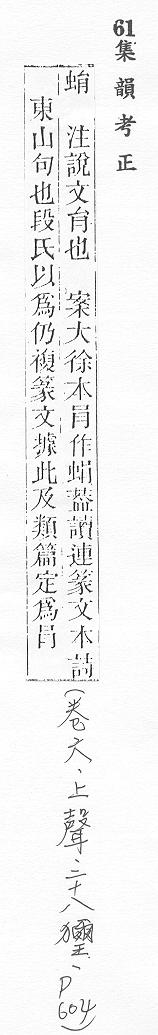 61集韻考正
蜎 注說文肙也 案大徐本肙作蜎蓋讀連篆文本詩
東山句也段氏以爲仍複篆文據此及類篇定爲肙
(卷六、上聲、二十八獮、P604)